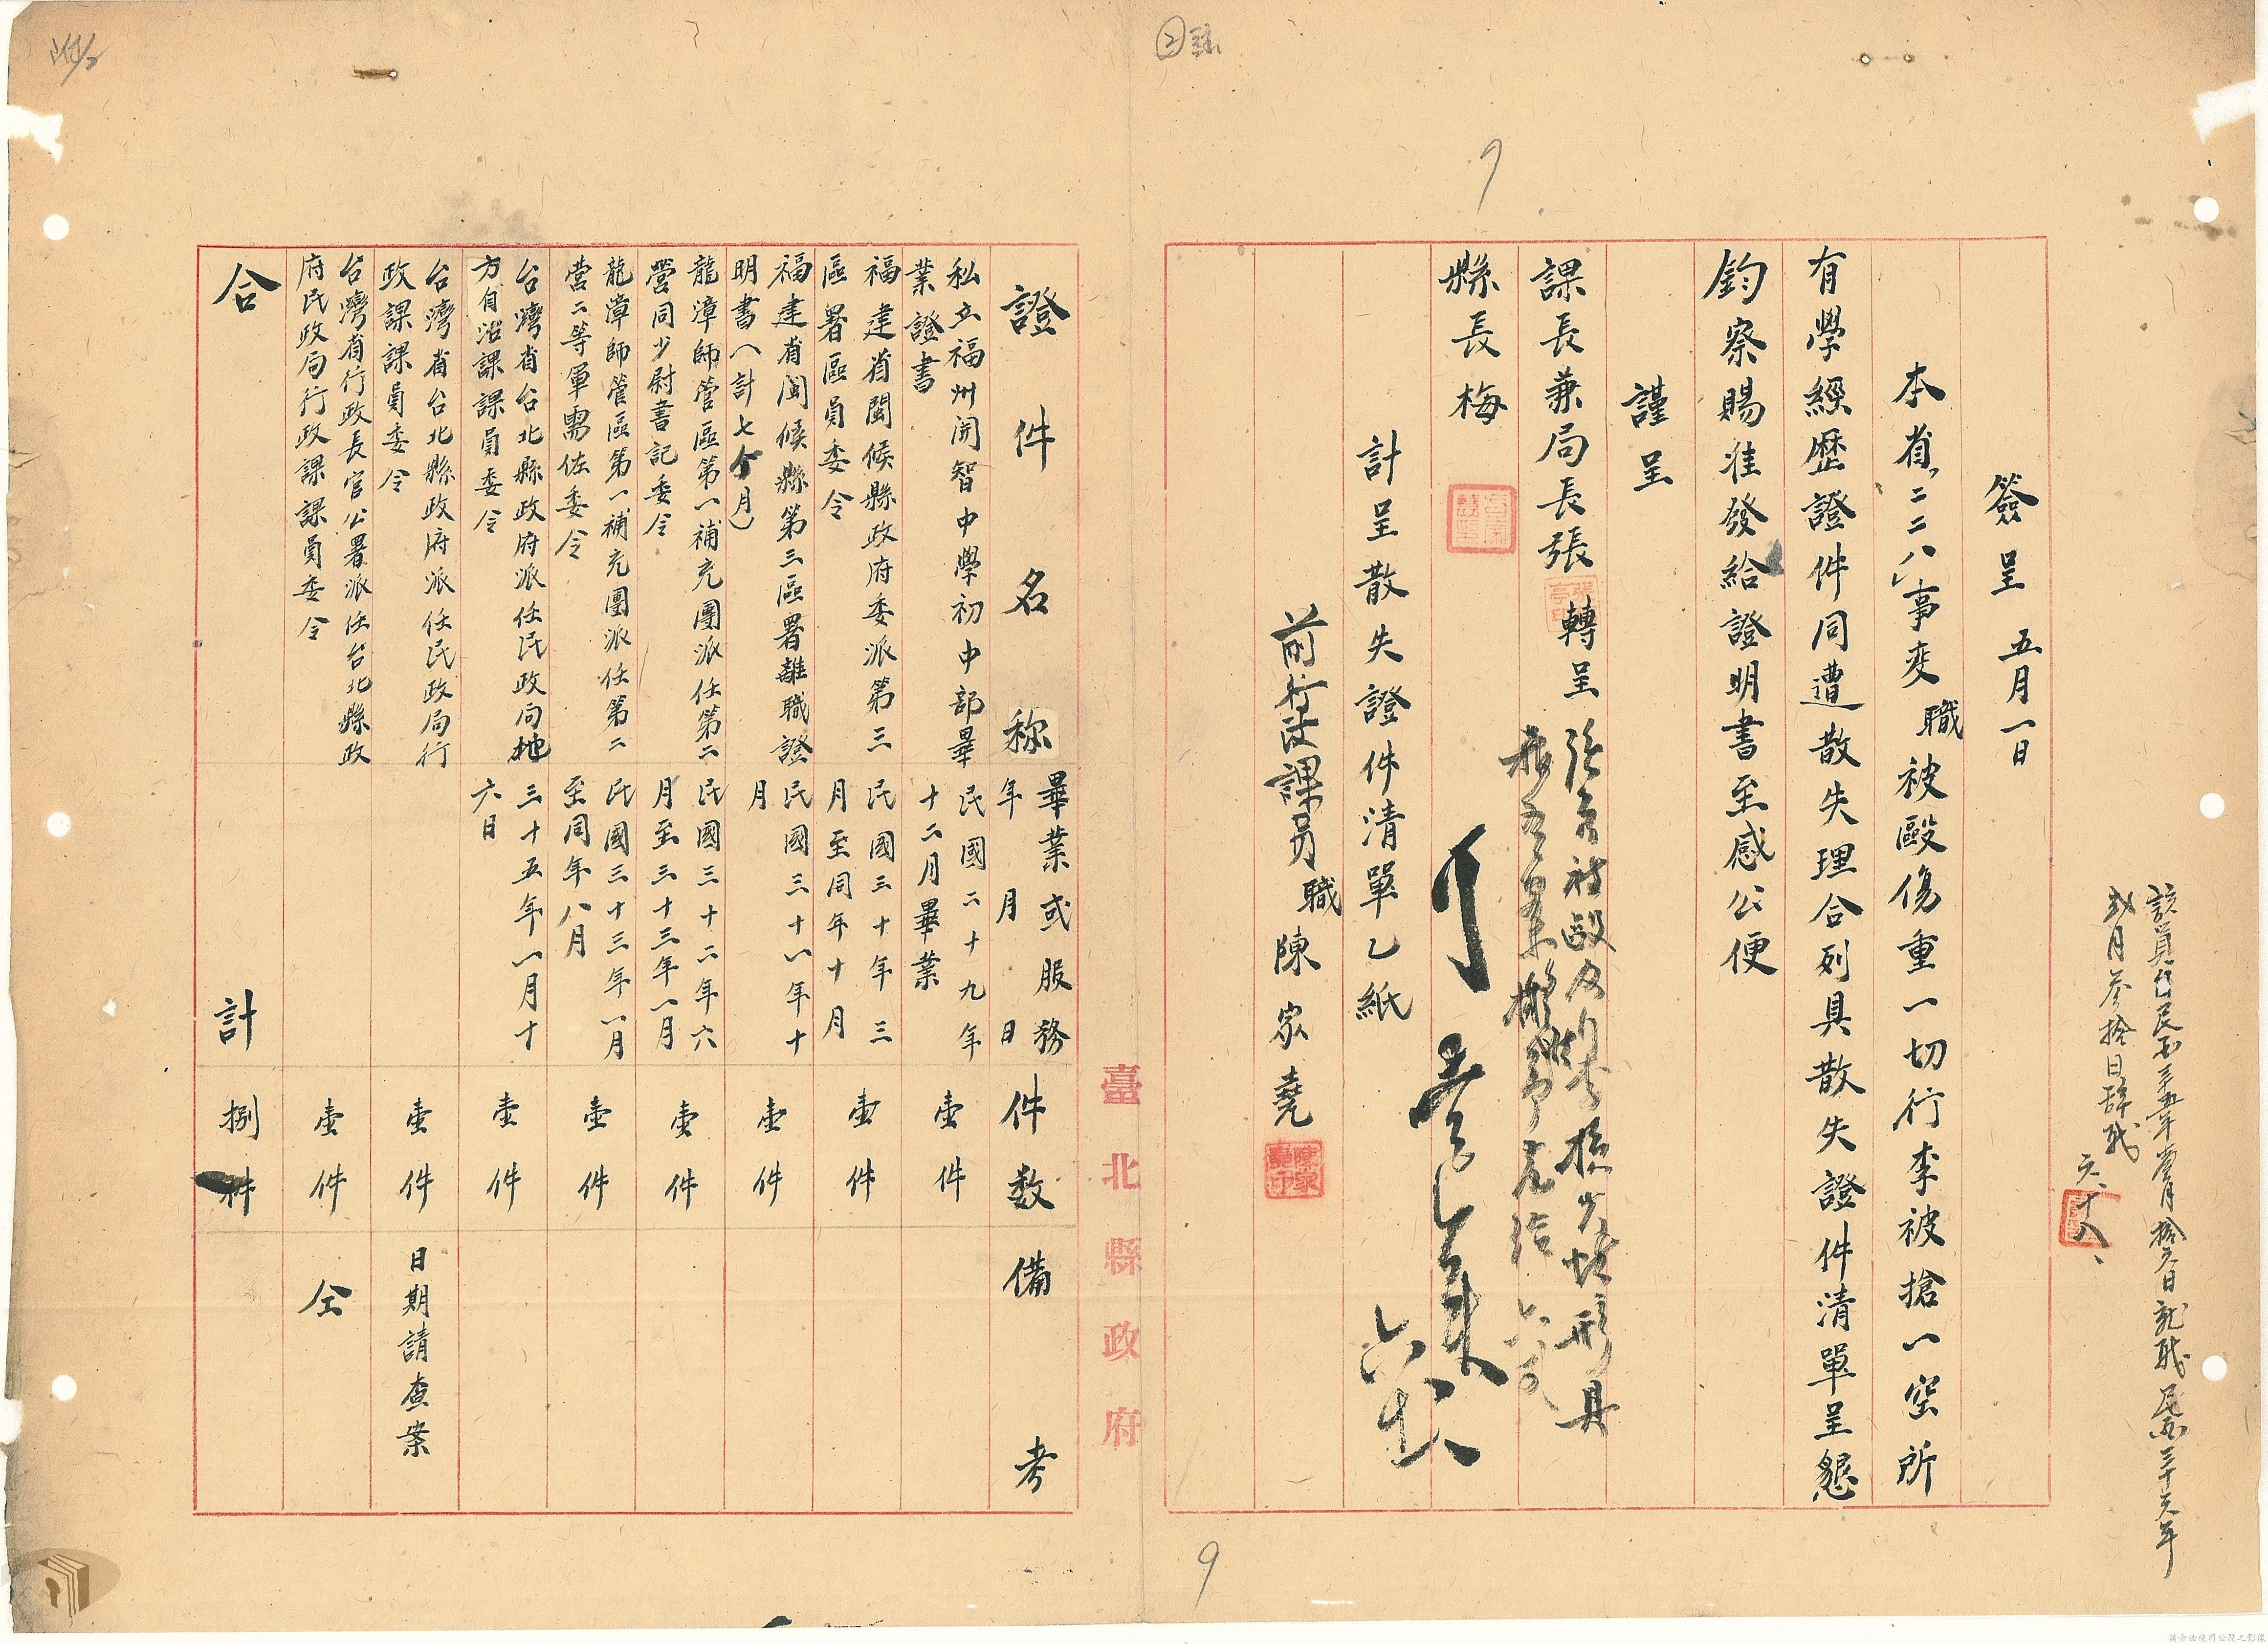 該員自民國三十五年壹月拾六日就職民國三十六年
弍月叁拾日辞職
六、十八、
簽呈 五月一日
本省「二二八」事变職被毆傷重一切行李被搶一空所
有學經歷證件同遭散失理合列具散失證件清單呈懇
鈞察賜准發給證明書至感公便
謹呈
課長兼局長張 轉呈
縣長梅
計呈散失證件清單乙紙
前行政課員職陳家堯
臺北縣政府
證件名称 畢業或服務年月日 件数 備考
私立福州開智中學初中部畢業證書 民國二十九年十二月畢業 壹件
福建省閩候縣政府委派第三區署區員委令 民國三十年三月至同年十月 壹件
福建省閩候縣第三區署離職證明書(計七个月) 民國三十一年十月 壹件
龍漳師管區第一補充團派任第二營同少尉書記委令 民國三十二年六月至三十三年一月 壹件
龍漳師管區第一補充團派任第二營二等軍需佐委令 民國三十三年一月至同年八月 壹件
台灣省台北縣政府派任民政局地方自治課課員委令 三十五年一月十六日 壹件
台灣省台北縣政府派任民政局行政課課員委令 壹件 日期請查案
台灣省行政長官公署派任台北縣政府民政局行政課課員委令 壹件 仝
合計 捌件
9
9
請合法使用公開之影像